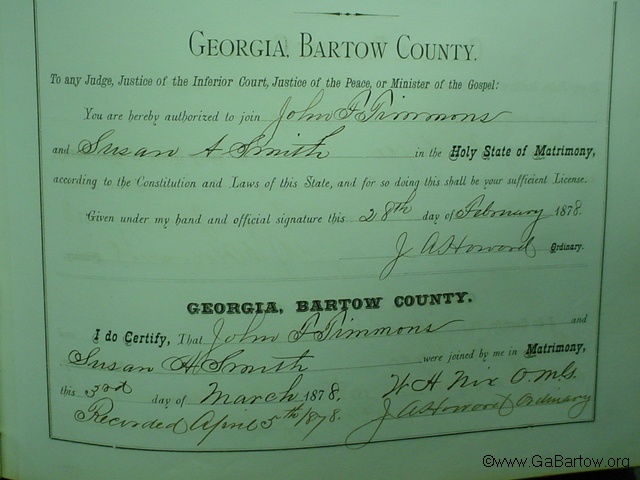 GEORGIA, BARTOW COUNTY.
To any Judge, Justice of the Inferior Court, Justice of the Peace, or Minister of the Gospel:
You are hereby authorized to join John F Timmons
and Susan A Smith in the Holy State of Matrimony,
according to the Constitution and Laws of this State, and for so doing this shall be your sufficient License.
Given under my hand and official signature this 28th day of February 1878.
J A Howard Ordinary.
GEORGIA, BARTOW COUNTY.
I do Certify, That John F Timmons and
Susan H Smith were joined by me in Matrimony,
this 3rd day of March 1878. W H Nix O.M.G.
Recorded April 5th 1878. J A Howard Ordinary
©www.GaBartow.org